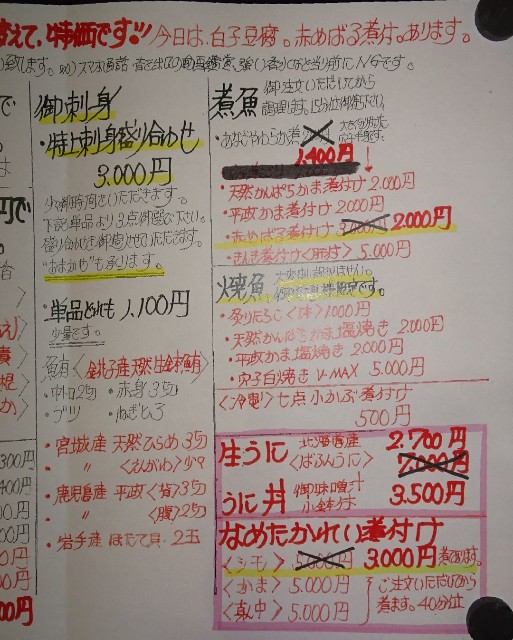 えて、特価です!! 今日は、白子豆腐。赤めばる煮付。あります。
御刺身
・特上刺身盛り合わせ
3,000円
少々御時間をいただきます。
下記単品より3点御選び下さい。
"おまかせ"も承ります。
・単品どれも 1,100円
少量です。
鮪〈銚子産天然生鮪〉
・中トロ2切 ・赤身3切
・ブツ ・ねぎとろ
・宮城産 天然ひらめ3切
〃 〈えんがわ〉少々
・鹿児島産 平政〈背〉3切
〃 〈腹〉2切
・岩手産 ほたて貝 2玉
煮魚 御注文いただいてから
調理します。15分位御待下さい。
・あなごやわらか煮
1,400円
・天然かんぱちかま煮付け 2,000円
・平政かま煮付け 2,000円
・赤めばる煮付け 3,000円 2,000円
・きんき煮付け〈肝付〉 5,000円
焼魚
・炙りたらこ〈1本〉1000円
・天然かんぱちかま塩焼き 2000円
・平政かま塩焼き 2,000円
・穴子白焼き V-MAX 5,000円
〈冷製〉七点小かぶ煮付け
500円
生うに 北海道産 〈ばふんうに〉 2,700円
7,000円
うに丼 御味噌汁 小鉢付 3,500円
なめたかれい煮付け
〈シモ〉 5,000円 3,000円 煮てあります。
〈かま〉 5,000円
〈真中〉 5,000円
ご注文いただいてから
煮ます。40分位